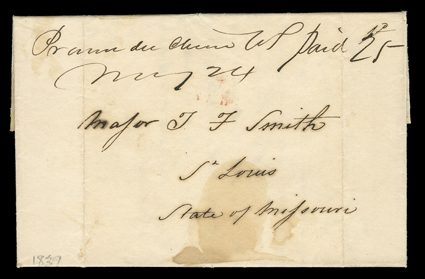 Prarie du Chien WT Paid 25
May 24
Major T F Smith
St Louis
State of Missouri
1837